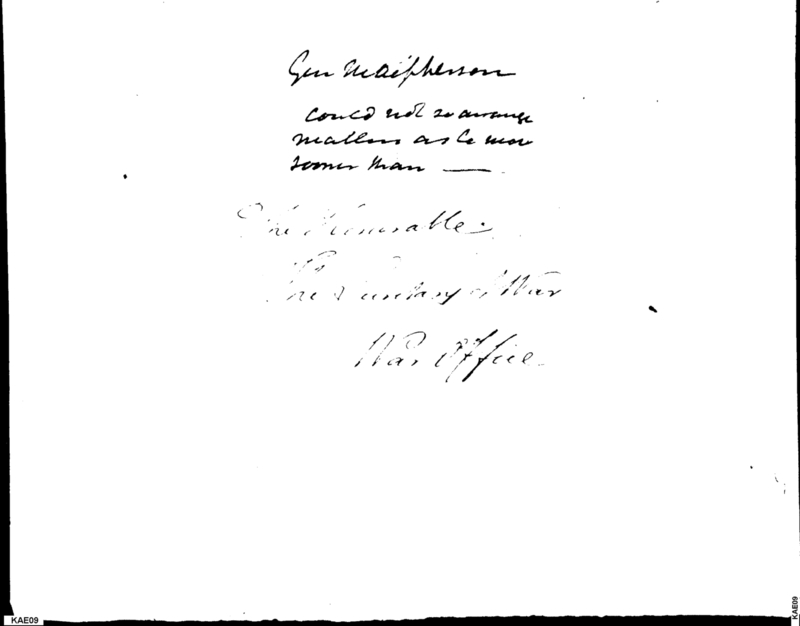 Gen Macpherson
could not so arrange
matters as to move
sooner than —
The Honorable
The Secretary of War
War Office.
KAE09
KAE09